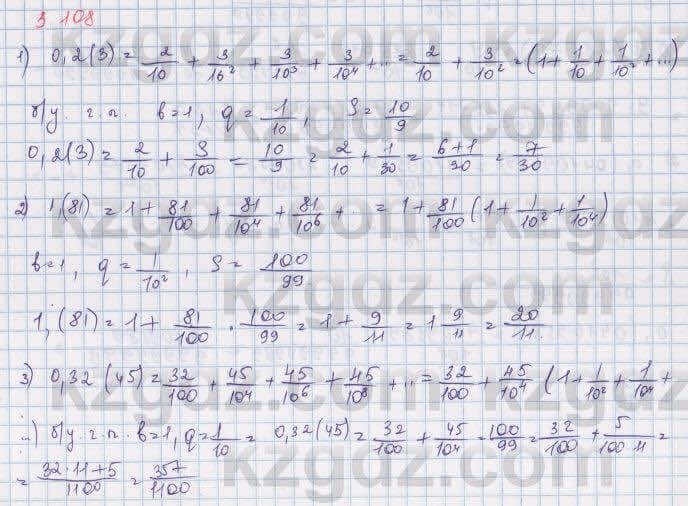 3 108
1) 0,2(3) = 2/10 + 3/10² + 3/10³ + 3/10⁴ + ... = 2/10 + 3/10² = (1 + 1/10 + 1/10² + ...)
б/у. г. п. в = 1, q = 1/10, S = 10/9
0,2(3) = 2/10 + 3/100 = 10/9 = 2/10 + 1/30 = 6+1/30 = 7/30
2) 1,(81) = 1 + 81/100 + 81/10⁴ + 81/10⁶ + .. = 1 + 81/100 (1 + 1/10² + 1/10⁴)
в = 1, q = 1/10², S = 100/99
1,(81) = 1 + 81/100 · 100/99 = 1 + 9/11 = 1 9/11 = 20/11.
3) 0,32(45) = 32/100 + 45/10⁴ + 45/10⁶ + 45/10⁸ + ... = 32/100 + 45/10⁴ (1 + 1/10² + 1/10⁴ +
...) б/у. г. п. в = 1, q = 1/10 = 0,32(45) = 32/100 + 45/10⁴ = 100/99 = 32/100 + 5/100·11 =
= 32·11+5/1100 = 357/1100
kzgdz.com